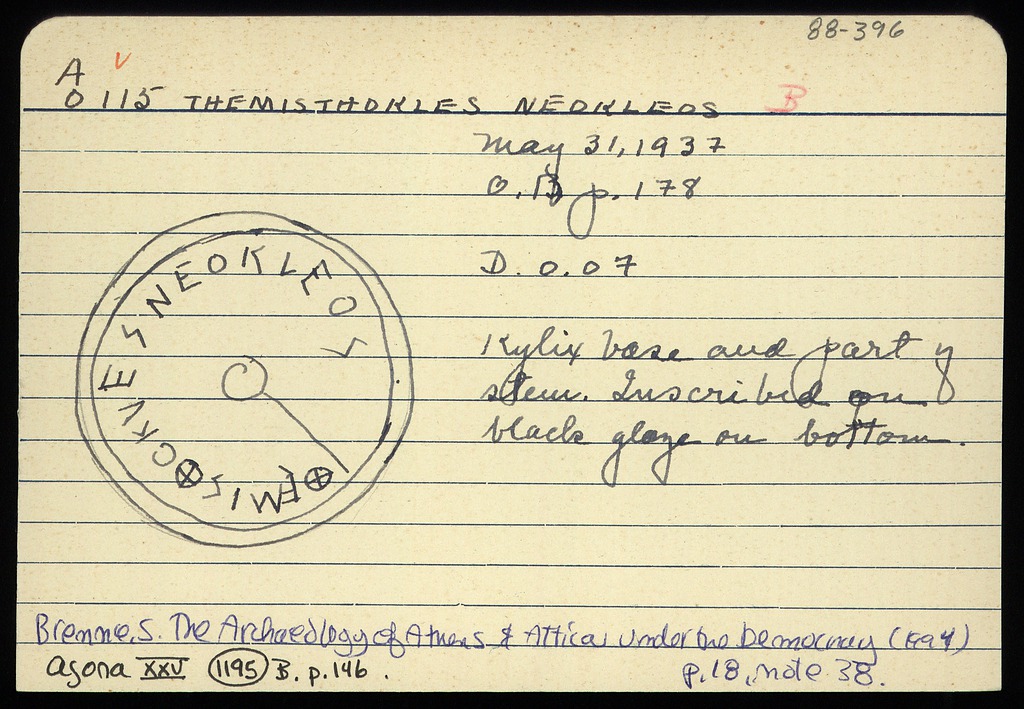 88-396
A v
O 115 THEMISTHOKLES NEOKLEOS B
May 31, 1937
O.B p. 178
D. 0.07
Kylix base and part of
stem. Inscribed on
black glaze on bottom.
⊗EMIS⊗OCKVES NEOKLEOS
Brenne, S. The Archaeology of Athens & Attica under the Democracy (1994)
p. 18, note 38.
Agora XXV 1195 B. p. 146.